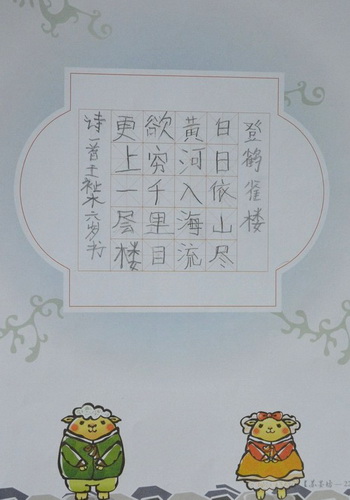 登鹤雀楼
白日依山尽
黄河入海流
欲穷千里目
更上一层楼
诗一首王 六岁书